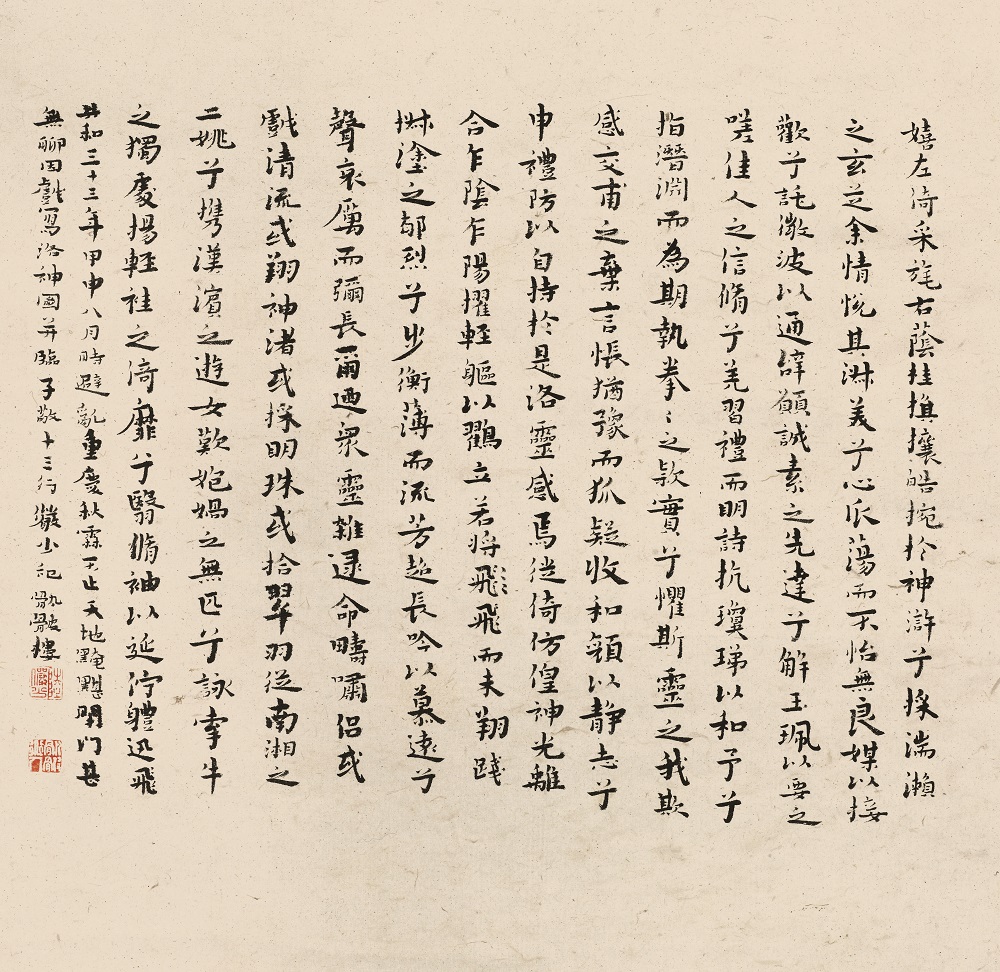 嬉左倚采旄右蔭桂旗攘皓捥於神滸兮採湍瀨
之玄芝余情悅其淑美兮心振蕩而不怡無良媒以接
歡兮託微波以通辭願誠素之先達兮解玉珮以要之
嗟佳人之信脩兮羌習禮而明詩抗瓊珶以和予兮
指潛淵而為期執拳〻之款實兮懼斯靈之我欺
感交甫之棄言悵猶豫而狐疑收和顏以静志兮
申禮防以自持於是洛靈感焉徙倚仿偟神光離
合乍陰乍陽擢輕軀以鸖立若將飛飛而未翔踐
椒塗之郁烈兮步衡薄而流芳超長吟以慕遠兮
聲哀厲而彌長爾迺衆靈雜遝命疇嘯侶或
戲清流或翔神渚或採明珠或拾翠羽從南湘之
二姚兮攜漢濱之遊女歎炮媧之無匹兮詠牽牛
之獨處揚輕袿之猗靡兮翳脩袖以延佇體迅飛
共和三十三年甲申八月時避亂重慶秋霖不止天地黤黮閉門甚
無聊因戲寫洛神圖并臨子敬十三行徵少記